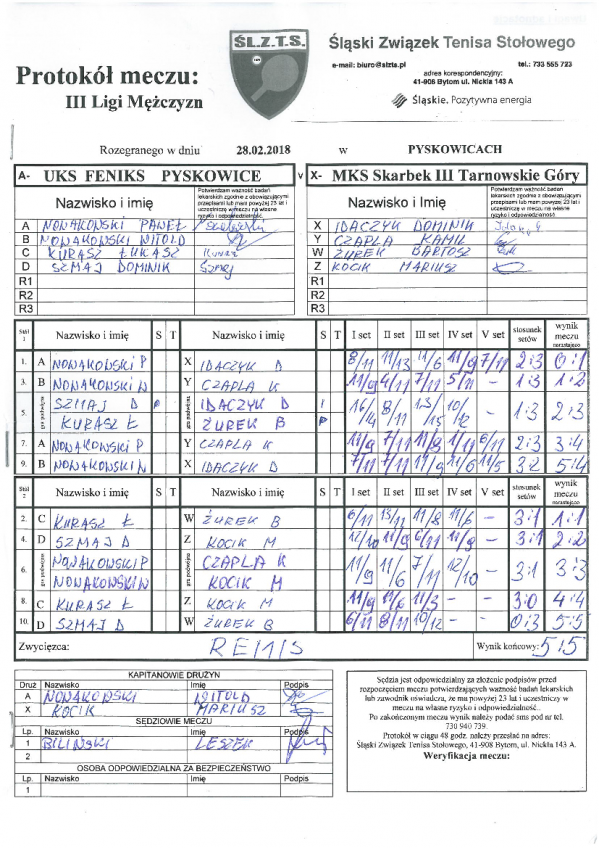 ŚL.Z.T.S.
Śląski Związek Tenisa Stołowego
e-mail: biuro@slzts.pl tel.: 733 555 723
adres korespondencyjny:
41-908 Bytom ul. Nickla 143 A
Śląskie. Pozytywna energia
Protokół meczu:
III Ligi Mężczyzn
Rozegranego w dniu 28.02.2018 w PYSKOWICACH
A- UKS FENIKS PYSKOWICE v X- MKS Skarbek III Tarnowskie Góry
Nazwisko i imię Potwierdzam ważność badań lekarskich zgodnie z obowiązującymi przepisami lub mam powyżej 23 lat i uczestniczę w meczu na własne ryzyko i odpowiedzialność. Nazwisko i Imię Potwierdzam ważność badań lekarskich zgodnie z obowiązującymi przepisami lub mam powyżej 23 lat i uczestniczę w meczu na własne ryzyko i odpowiedzialność
A NOWAKOWSKI PAWEŁ X IDACZYK DOMINIK
B NOWAKOWSKI WITOLD Y CZAPLA KAMIL
C KURASZ ŁUKASZ W ŻUREK BARTOSZ
D SZMAJ DOMINIK Z KOCIK MARIUSZ
R1 R1
R2 R2
R3 R3
Stół 1 Nazwisko i imię S T Nazwisko i imię S T I set II set III set IV set V set stosunek setów wynik meczu narastająco
1. A NOWAKOWSKI P X IDACZYK D 8/11 11/13 11/6 11/9 7/11 2:3 0:1
3. B NOWAKOWSKI W Y CZAPLA K 11/9 4/11 7/11 5/11 – 1:3 1:2
5. gra podwójna SZMAJ D IDACZYK D 8/11 1:3 2:3
KURASZ Ł ŻUREK B
7. A NOWAKOWSKI P Y CZAPLA K 11/9 7/11 11/9 6/11 2:3 3:4
9. B NOWAKOWSKI W X IDACZYK D 7/11 7/11 11/9 11/6 11/5 3:2 5:4
Stół 2 Nazwisko i imię S T Nazwisko i imię S T I set II set III set IV set V set stosunek setów wynik meczu narastająco
2. C KURASZ Ł W ŻUREK B 6/11 13/11 11/8 11/6 – 3:1 1:1
4. D SZMAJ D Z KOCIK M 12/10 11/9 6/11 11/9 – 3:1 2:2
6. gra podwójna NOWAKOWSKI P CZAPLA K 11/9 11/6 7/11 12/10 – 3:1 3:3
NOWAKOWSKI W KOCIK M
8. C KURASZ Ł Z KOCIK M 11/9 11/6 11/3 – – 3:0 4:4
10. D SZMAJ D W ŻUREK B 6/11 8/11 10/12 – – 0:3 5:5
Zwycięzca: REMIS Wynik końcowy: 5:5
KAPITANOWIE DRUŻYN
Druż Nazwisko Imię Podpis
A NOWAKOWSKI WITOLD
X KOCIK MARIUSZ
SĘDZIOWIE MECZU
Lp. Nazwisko Imię Podpis
1 BILIŃSKI LESZEK
2
OSOBA ODPOWIEDZIALNA ZA BEZPIECZEŃSTWO
Lp. Nazwisko Imię Podpis
1
Sędzia jest odpowiedzialny za złożenie podpisów przed
rozpoczęciem meczu potwierdzających ważność badań lekarskich
lub zawodnik oświadcza, że ma powyżej 23 lat i uczestniczy w
meczu na własne ryzyko i odpowiedzialność..
Po zakończonym meczu wynik należy podać sms pod nr tel.
730 940 739.
Protokół w ciągu 48 godz. należy przesłać na adres:
Śląski Związek Tenisa Stołowego, 41-908 Bytom, ul. Nickla 143 A.
Weryfikacja meczu: